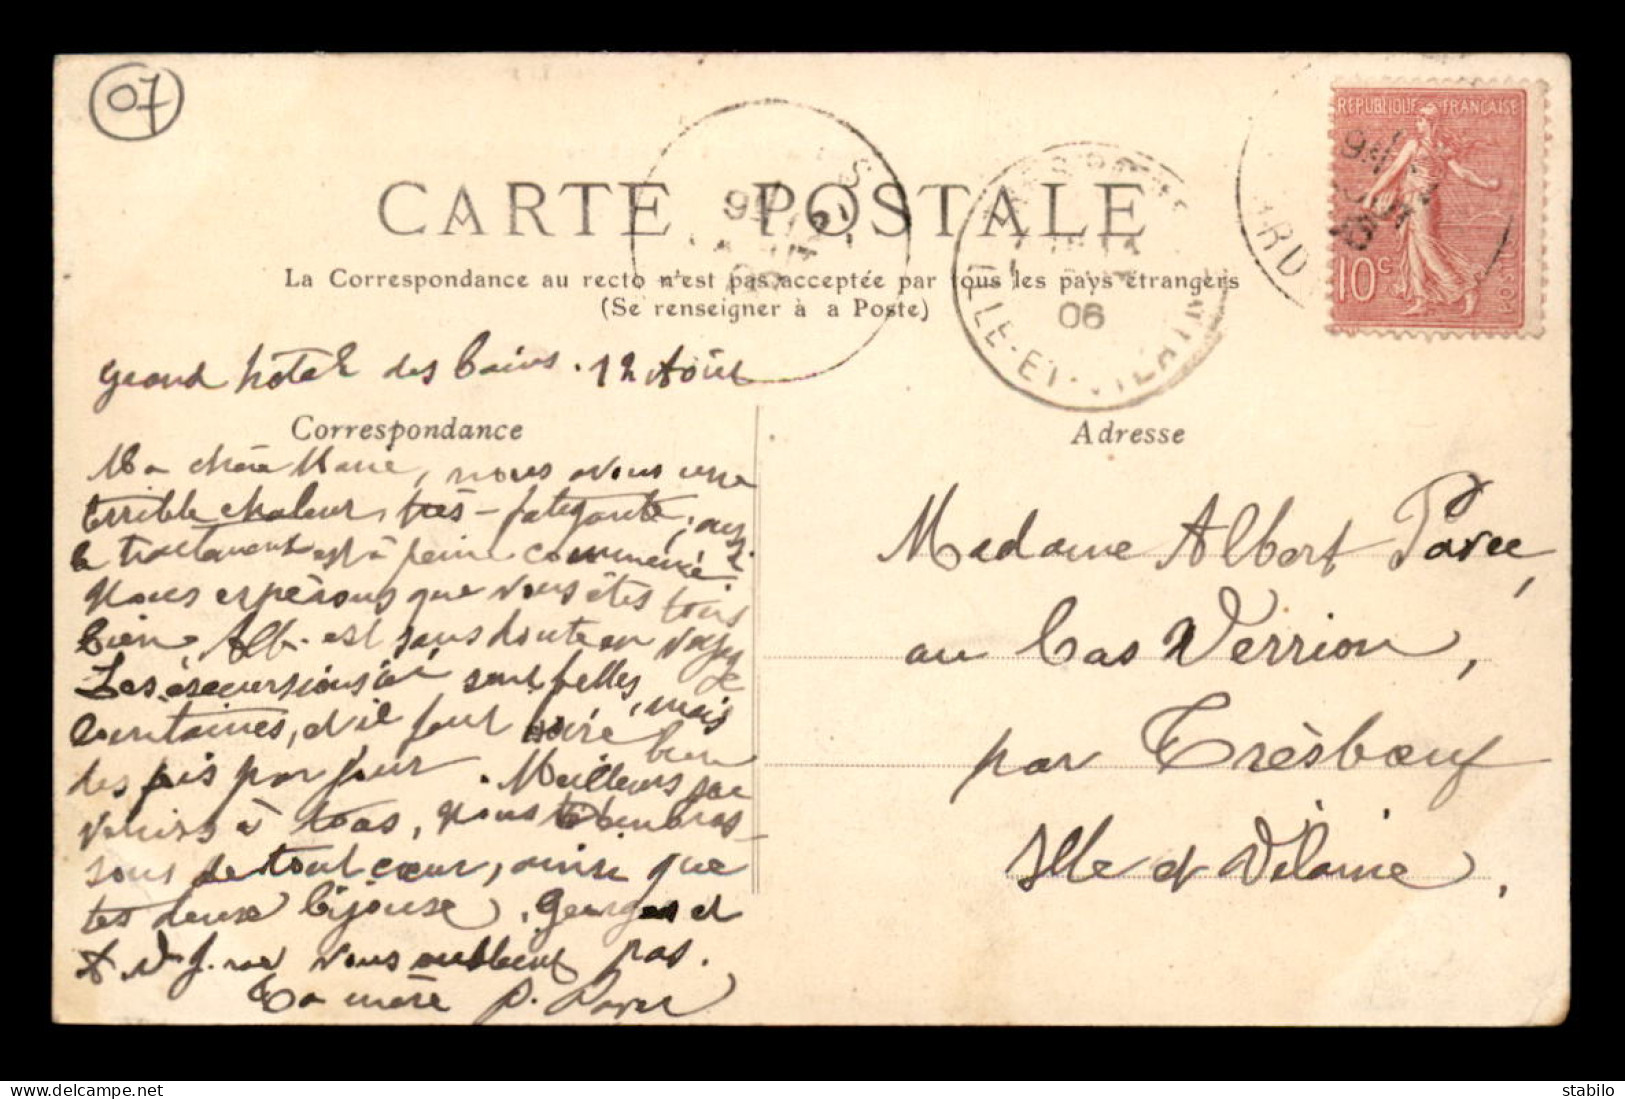 07
RÉPUBLIQUE FRANÇAISE
10c
CARTE POSTALE
La Correspondance au recto n'est pas acceptée par tous les pays étrangers
(Se renseigner à a Poste)
ILLE-ET-VILAINE
06
Grand hôtel des bains. 12 Août
Correspondance
Ma chère Marie, nous avons une
terrible chaleur, très-fatigante,
le traitement est à peine commencé.
Nous espérons que vous êtes tous
bien. Alb. est sans doute en voyage
Les excursions ici sont belles, mais
lointaines, et il faut boire bien
des fois par jour. Meilleurs sou
venirs à tous, nous t'embras-
sons de tout cœur, ainsi que
tes deux bijoux. Georges et
vous oublient pas.
Ta mère P. Paree
Adresse
Madame Albert Paree,
au bas Verrion,
par Tresbœuf
Ille et Vilaine.
stabilo